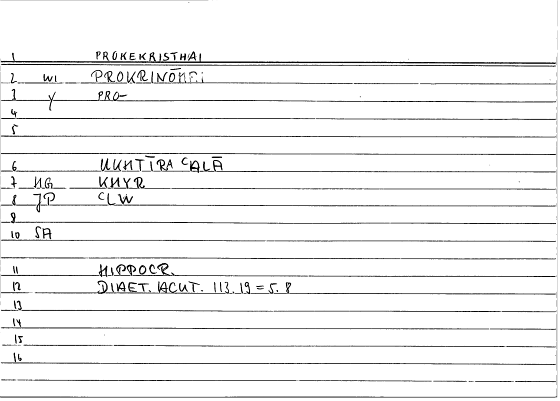 1 PROKEKRISTHAI
2 WI PROKRINOMAI
3 Y PRO-
4
5
6 UKHTĪRA ʿALĀ
7 HG KHYR
8 JP ʿLW
9
10 SA
11 HIPPOCR.
12 DIAET. ACUT. 113.19 = 5.8
13
14
15
16